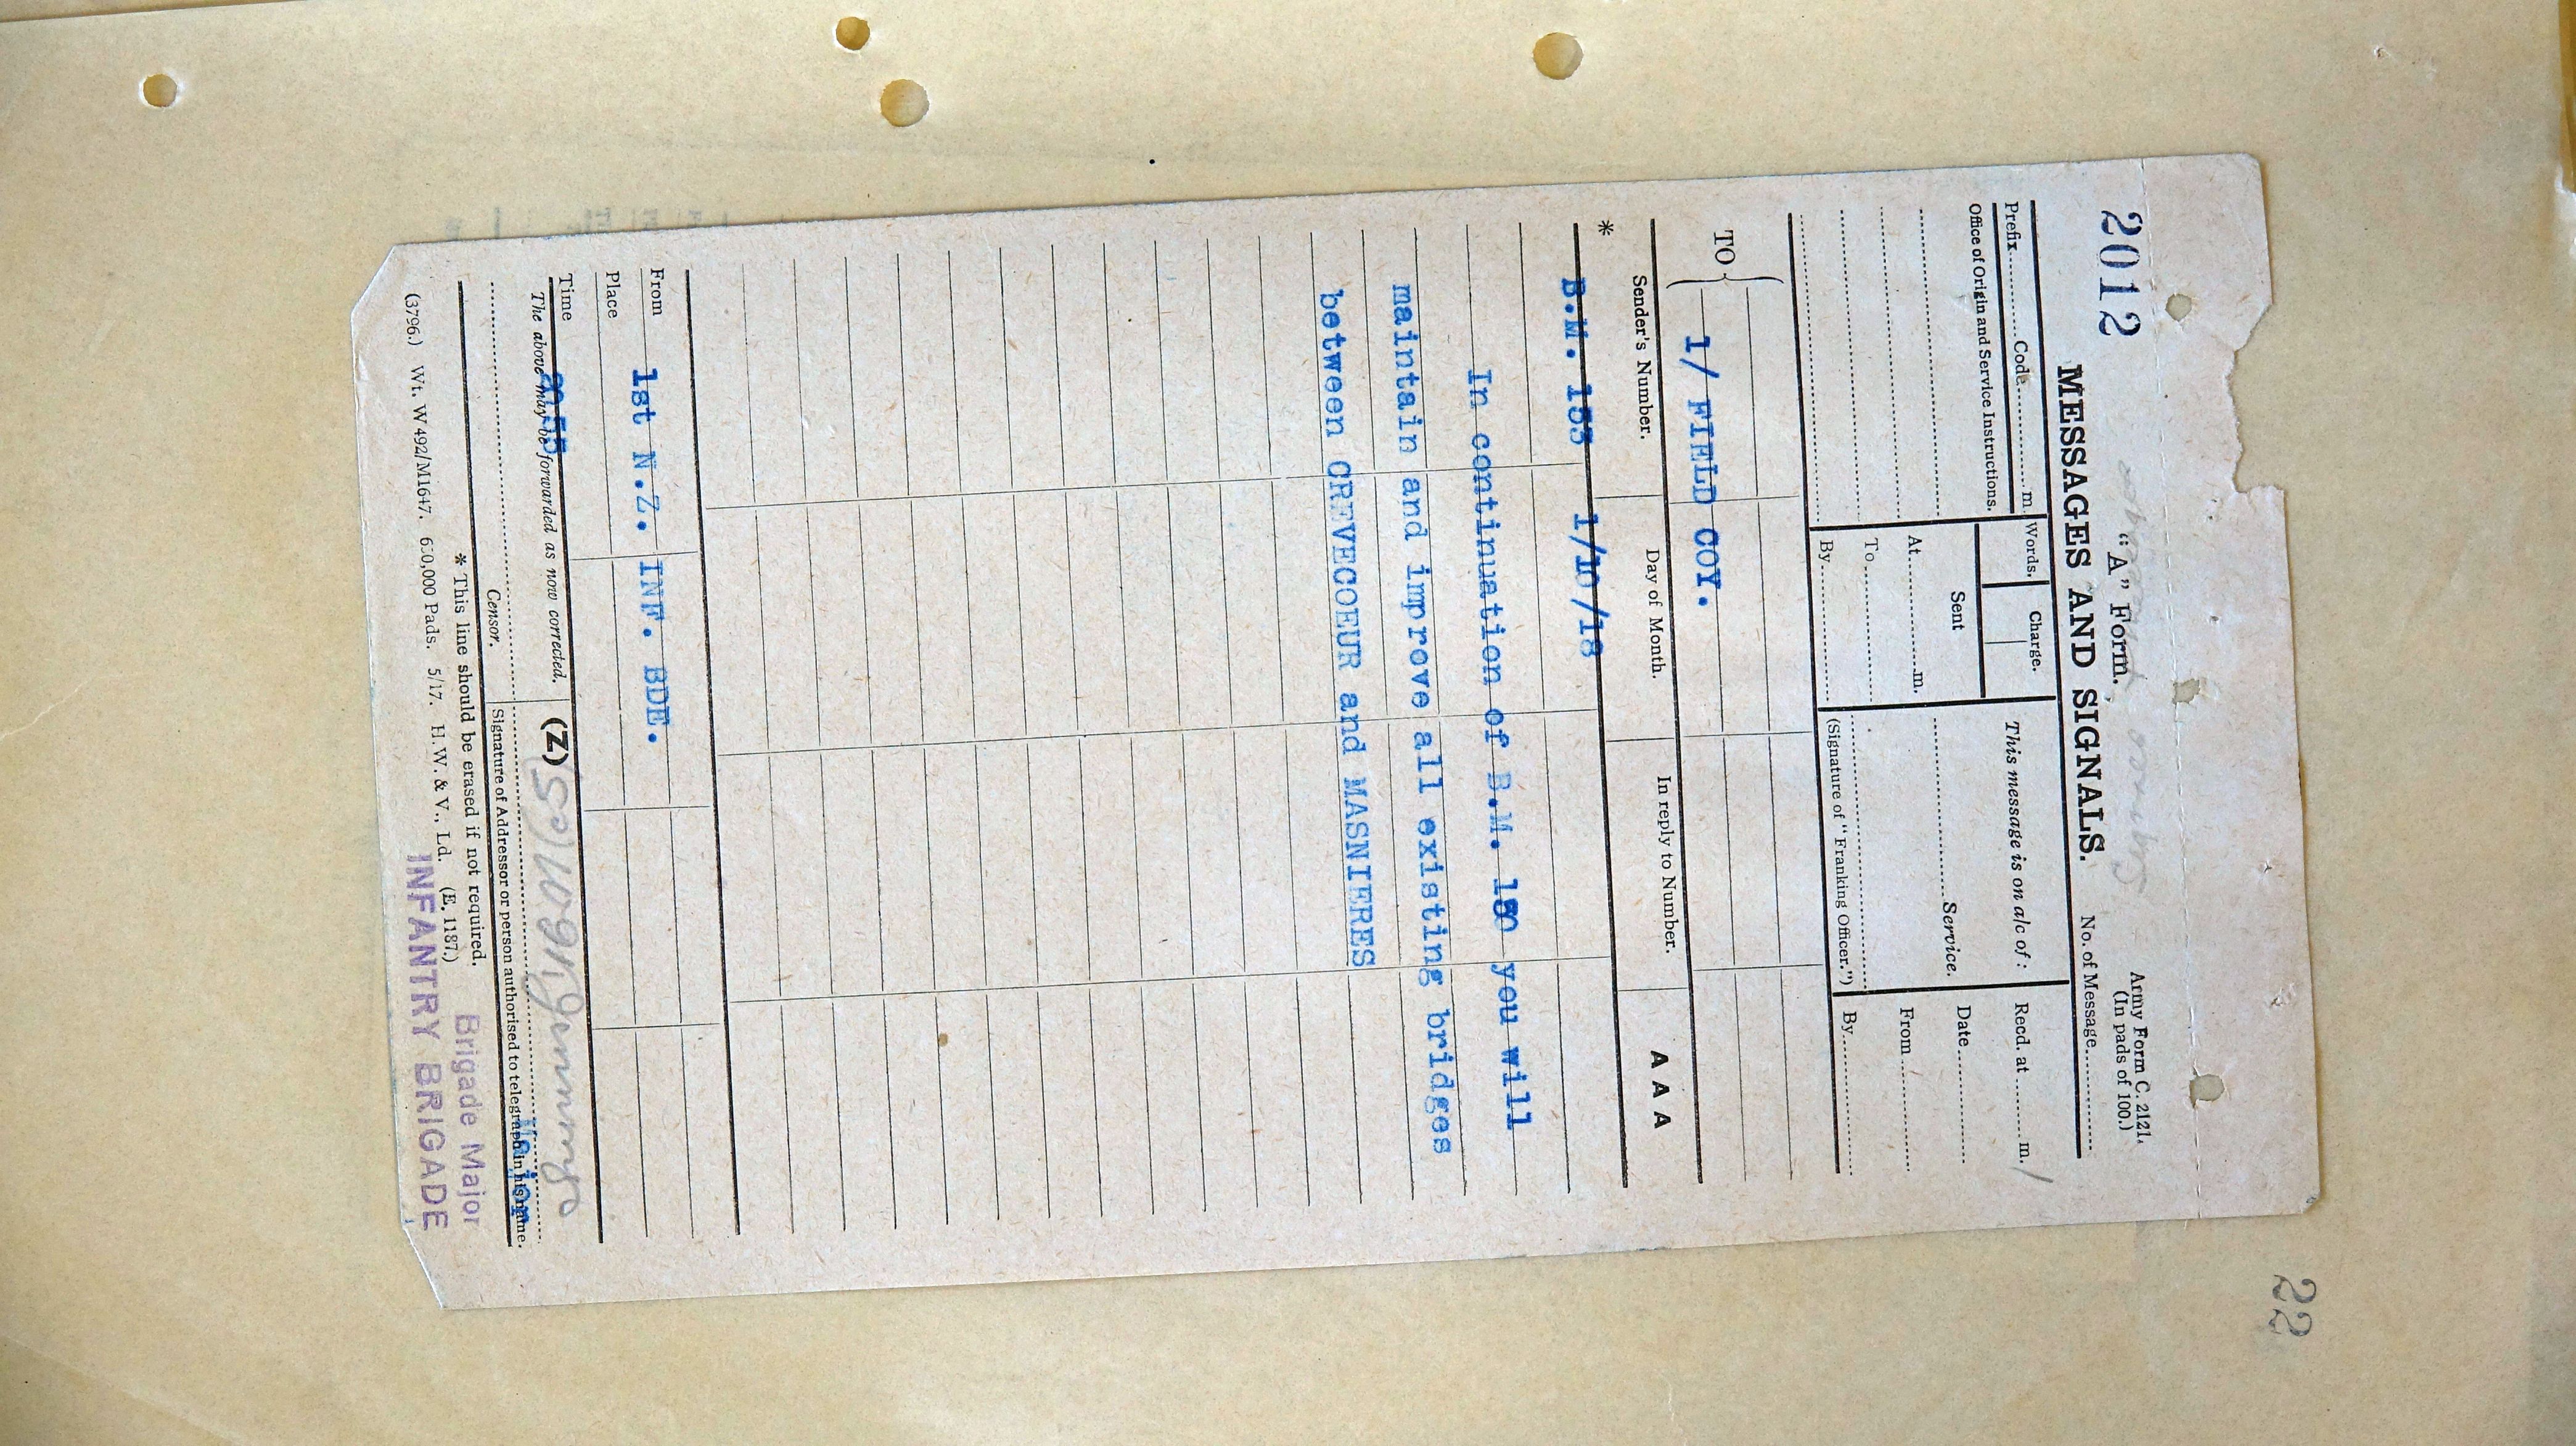 22
2012
"A" Form.
Army Form C. 2121.
(In pads of 100.)
MESSAGES AND SIGNALS.
No. of Message
Prefix Code m.
Words.
Charge.
This message is on a/c of:
Recd. at m.
Office of Origin and Service Instructions.
Sent
Date
At m.
Service.
From
To
By
(Signature of "Franking Officer.")
By
TO
1/ FIELD COY.
* Sender's Number. Day of Month. In reply to Number. A A A
B.M. 153 1/10/18
In continuation of B.M. 150 you will
maintain and improve all existing bridges
between CREVECOEUR and MASNIERES
From 1st N.Z. INF. BDE.
Place
Time 2055
The above may be forwarded as now corrected.
(Z)
Major
Censor.
Signature of Addressor or person authorised to telegraph in his name.
* This line should be erased if not required.
Brigade Major
(3796.) Wt. W 492/M1647. 650,000 Pads. 5/17. H.W. & V., Ld. (E. 1187.)
INFANTRY BRIGADE